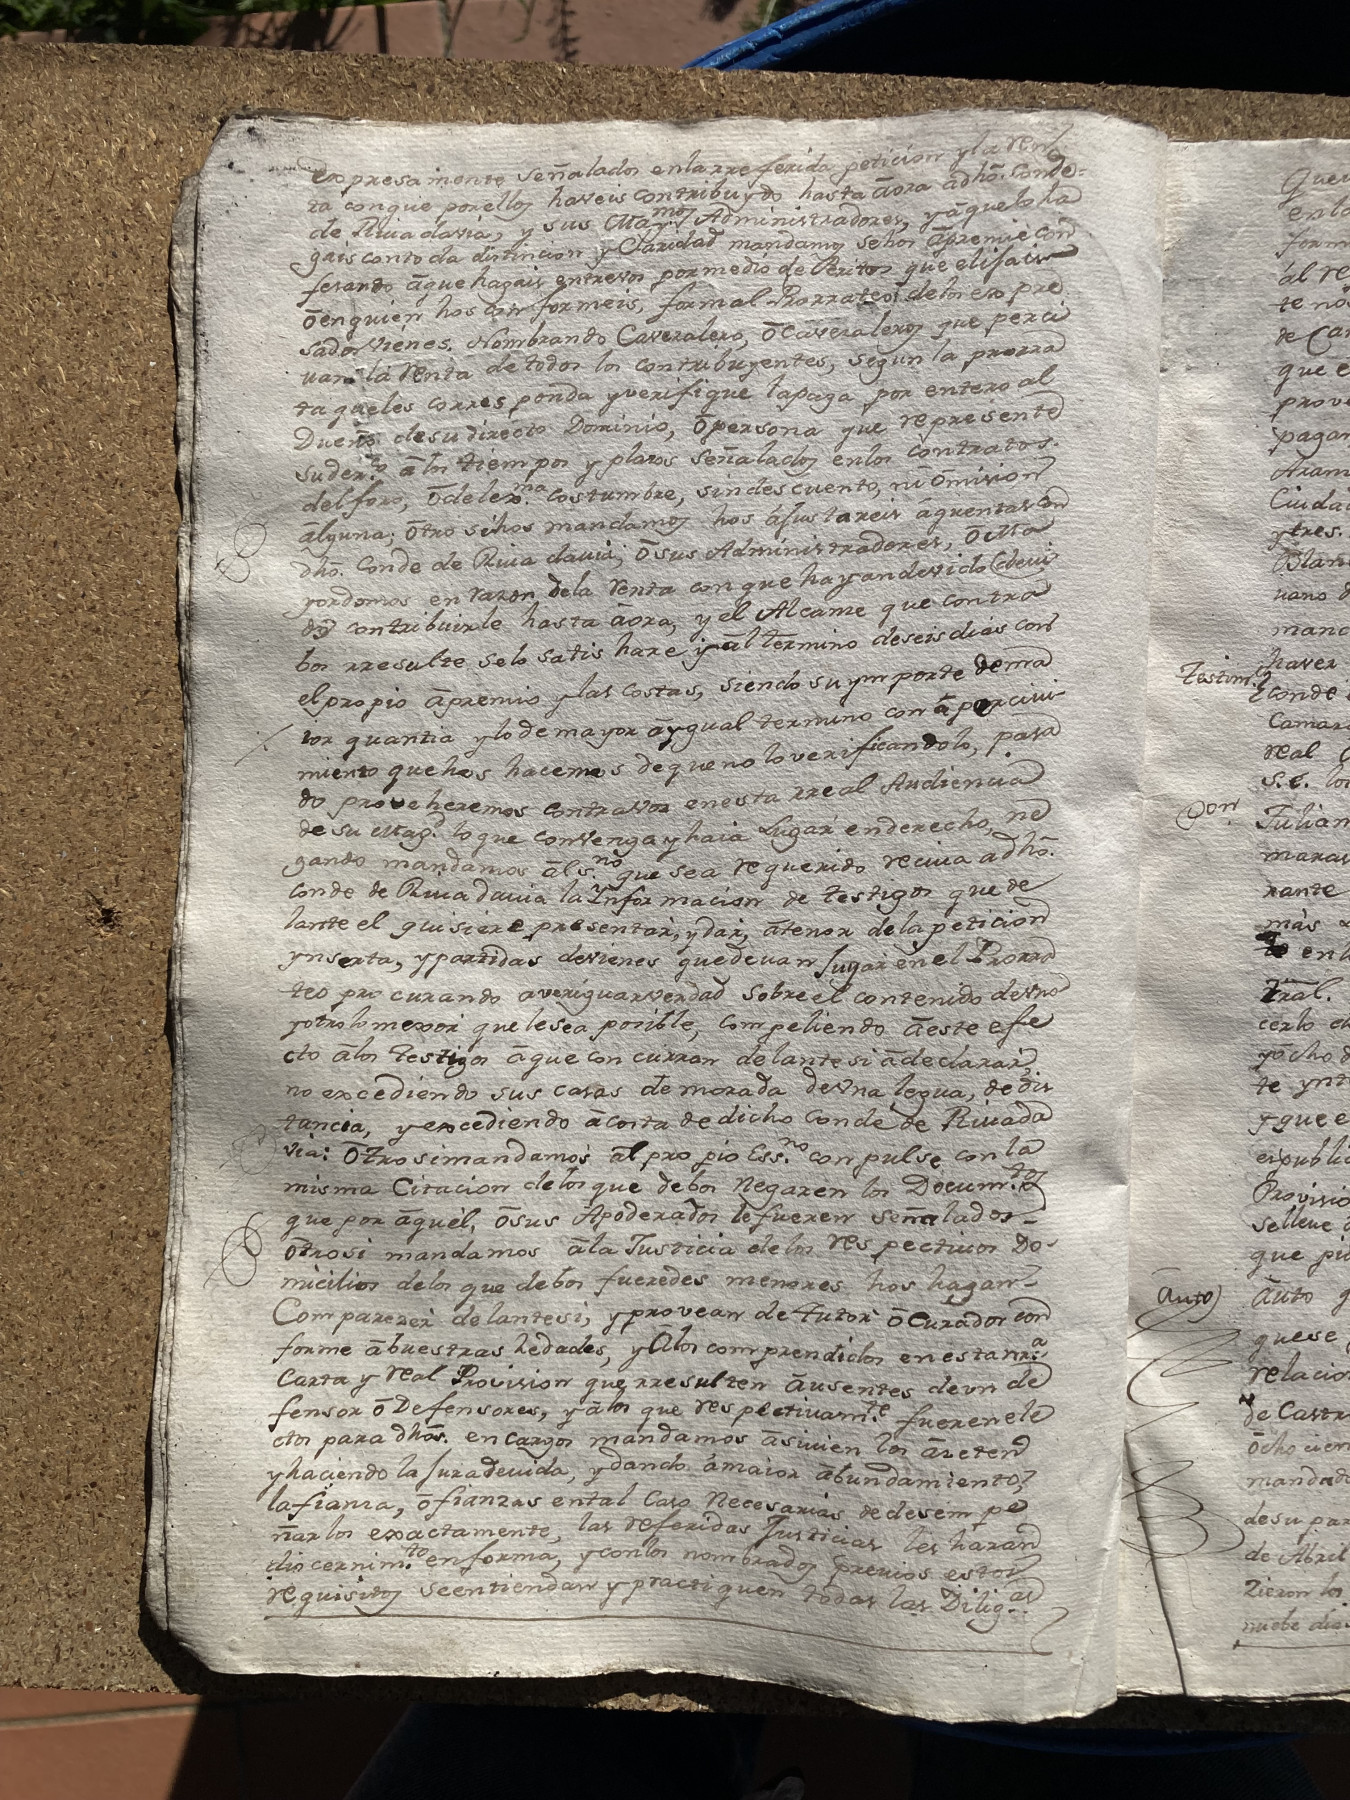 expresamente señalados enlarreferida peticion yla Ren
ta conque porellos haveis contribuydo hasta āora adhō. Conde
de Rivadavia, y sus Maymos Administradores, yāquelo ha
gais contoda distincion y Claridad mandamos señor āpremie con
fesando āque hagais entrevos pormedio de Peritos que elijais
ōenquien hos conformeis, formal Prorrateo delos expre
sados vienes. Nombrando Cavezalero, ōCavezaleros que perci
van la Renta de todos los contribuyentes, segun la prorra
ta queles corresponda yverifique lapaga por entero al
Dueño desu directo Dominio, ōpersona que represente
suderto. ālos tiempos y plazos señalados enlos contratos
delforo, ōdelexma. Costumbre, sindescuento, ni ōmision
ālguna; ōtro sihos mandamos hos āfustareis āquentascon
dhō. Conde de Rivadavia; ōsus Administradores, ōMa
yordomos en razon dela Renta con que hayandevido
do contribuirle hasta āora, y el Alcanze que contra
bos rresulte selo satishaze yāl termino deseisdias con
elpropio āpremio ylas costas, siendo suymporte dema
ior quantia ylodemayor āygual termino con āpercivi
miento quehos hacemos dequeno loverificandolo, pasa
do proveheremos contravos enesta rreal Audiencia
desu Magd. loque convenga yhaia Lugar enderecho, ne
gando mandamos āl s.no que sea requerido reciva adhō.
Conde de Rivadavia la Ynformacion de testigos que de
lante el quisiere presentar, ydar, ātenor dela peticion
ynserta, ypartidas devienes quedevan lugar enel Prorra
teo procurando averiguarverdad sobreel contenido devno
yotrolomexor quelesea posible, compeliendo āeste efe
cto ālos testigos āque concurran delantesi ādeclarar,
no excediendo sus casas de morada devna legua, dedis
tancia, yexcediendo ācosta dedicho Conde de Rivada
via: ōtrosimandamos āl propio Ess.no compulse conla
misma Citacion delos que debos Negaren los Documtos
que por āquel, ōsus Apoderados lefueren señalados
ōtrosi mandamos āla Justicia delos respectivos Do
micilios delos que debos fueredes menores hos hagan
Comparezer delantesi, yprovean de tutor ōCurador con
forme ābuestras hedades, yĀlos comprendidos enestanra
Carta y real Provision querresulten āusentes devn de
fensor ō Defensores, yālos que respectivamte. fuerenele
ctos para dhōs. encargos mandamos āsivien los āceten
yhaciendo la Juradevida, ydando āmaior ābundamiento,
lafianza, ōfianzas ental Caso Necesarias dedesempe
ñarlos exactamente, las referidas Justicias les haran
discernimto. enforma, yconlos nombrados previos estos
requisitos seentiendan y practiquen todas las Diligas
Testimo.
Don
Auto)
Que
enla
form
āl re
te no
de Ca
que e
prove
pagar
Aram
Ciuda
ytres.
Blan
uano d
mand
haver
conde
Camar
real C
S.E. lo
Julian
maras
rante
mās
en l
tral.
cerlo
yōcho d
te ynt
yque e
expubli
Provisio
selleve
que pi
āuto q
quese
relacio
de Castr
ōcho cien
mandad
desu par
de Abril
zieron los
nuebe dia